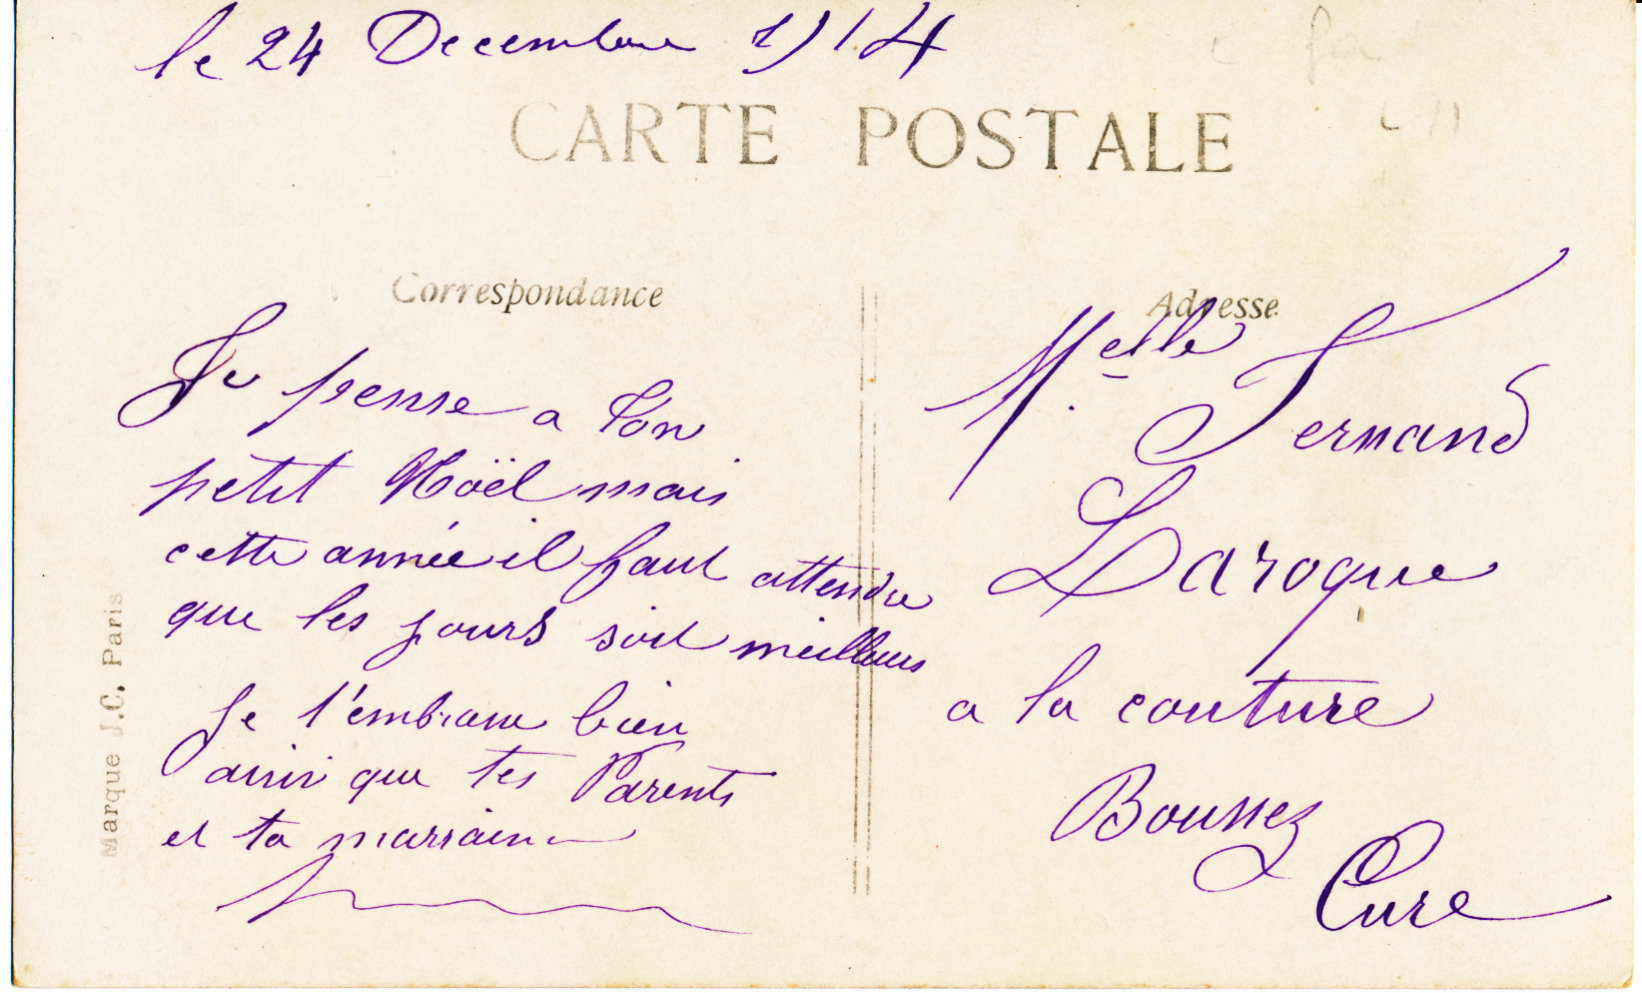 le 24 Decembre 1914
CARTE POSTALE
Correspondance
Je pense a ton
petit Noël mais
cette année il faut attendre
que les jours soit meilleurs
Je t'embrasse bien
ainsi que tes Parents
et ta marraine
Marque J.C. Paris
Adresse
Melle Fernand
Laroque
a la couture
Boussez
Eure